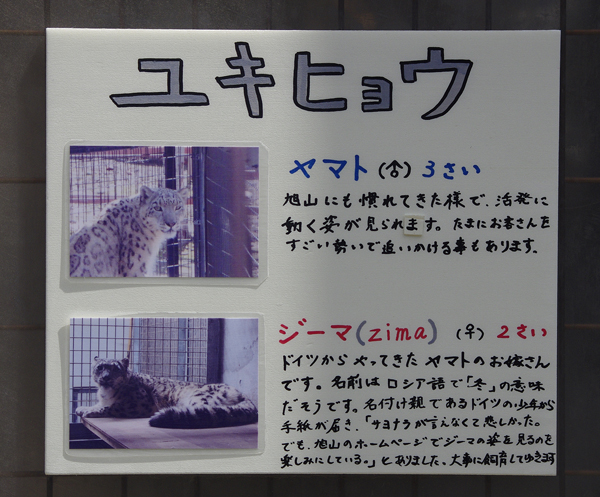 ユキヒョウ
ヤマト(♂) 3さい
旭山にも慣れてきた様で、活発に
動く姿が見られます。たまにお客さんを
すごい勢いで追いかける事もあります。
ジーマ(zima) (♀) 2さい
ドイツからやってきたヤマトのお嫁さん
です。名前はロシア語で「冬」の意味
だそうです。名付け親であるドイツの少年から
手紙が届き、「サヨナラが言えなくて悲しかった。
でも、旭山のホームページでジーマの姿を見るのを
楽しみにしている。」とありました、大事に飼育してゆきます